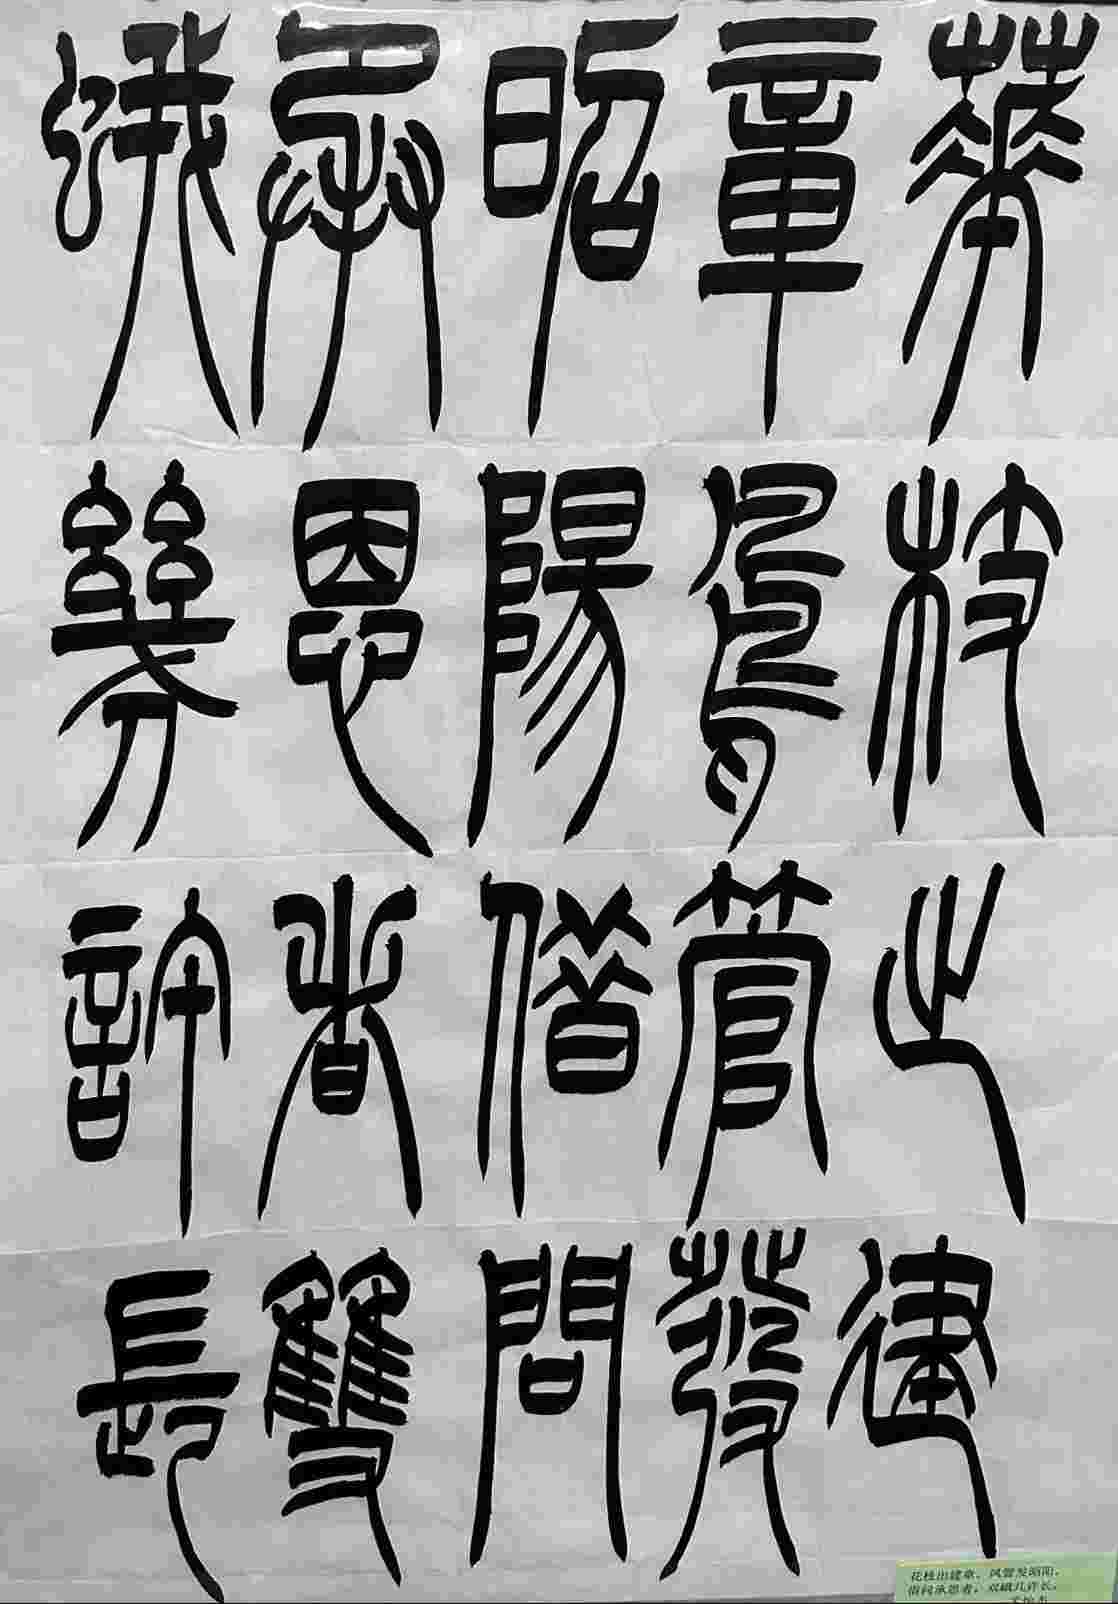 華枝出建
章鳳管發
昭陽借問
承恩者雙
蛾幾許長
花枝出建章，凤管发昭阳，
借问承恩者，双蛾几许长。